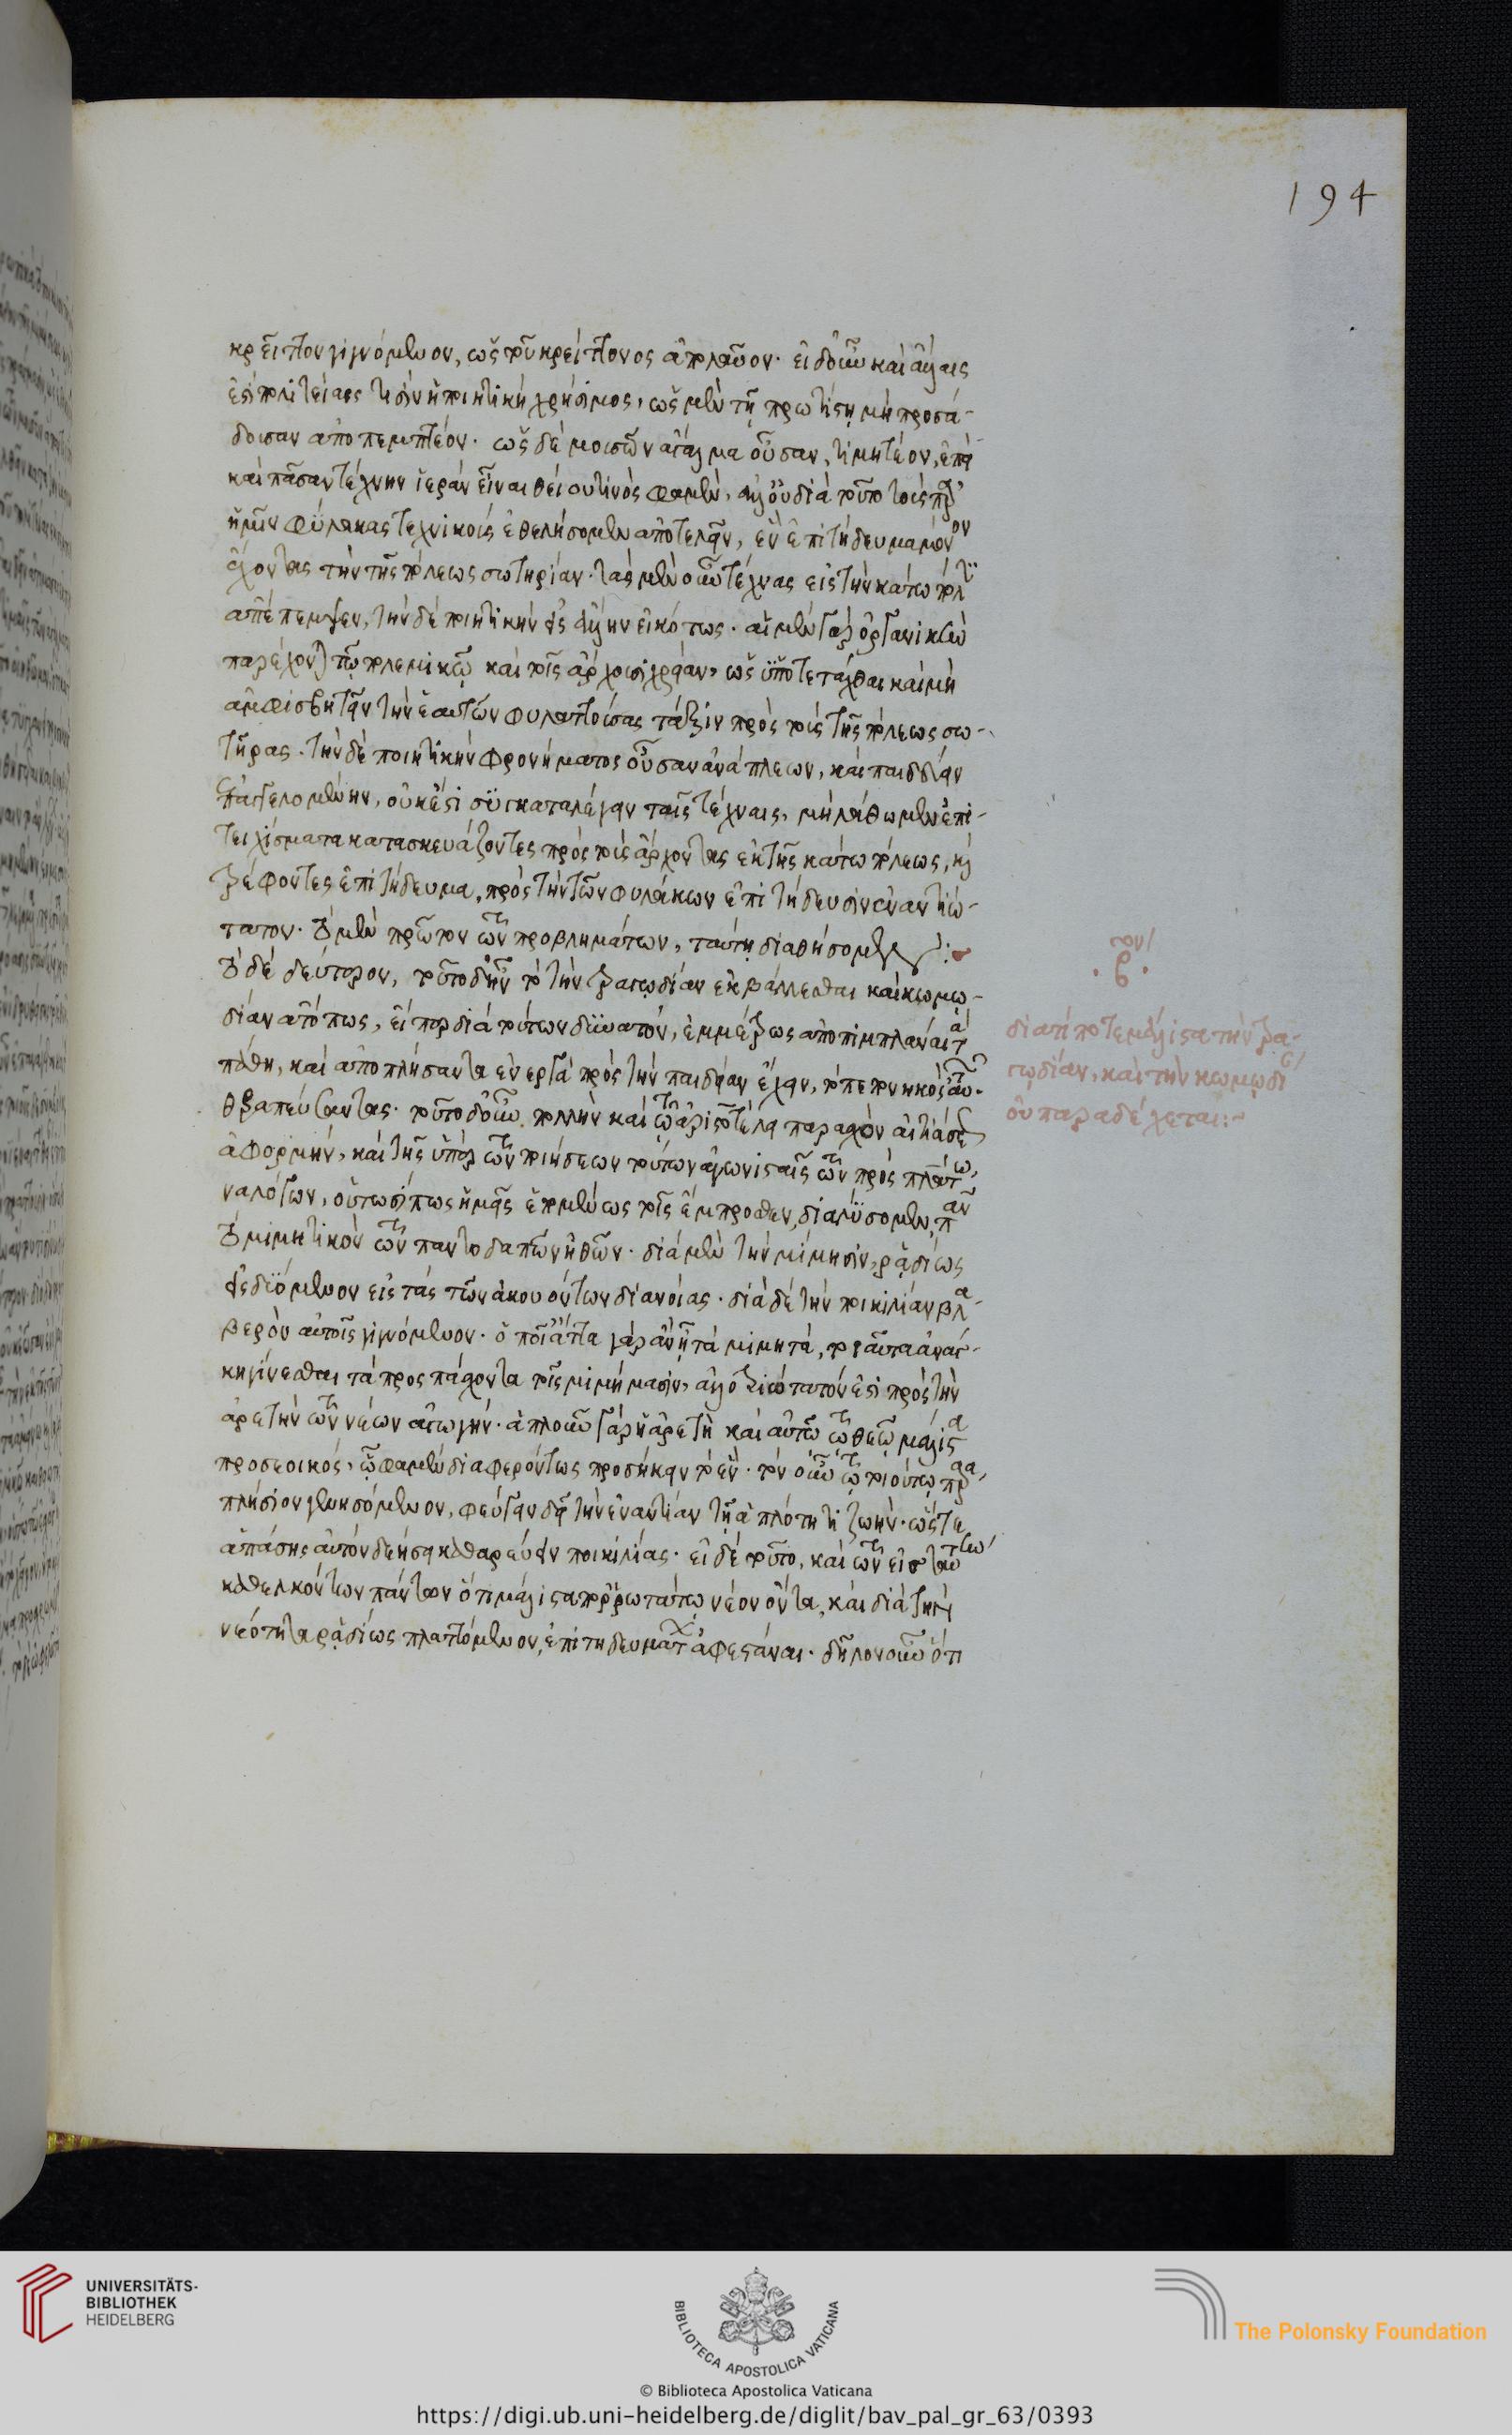 194
κρεῖττον γιγνόμενον, ὡς τοῦ κρείττονος ἀπολαῦον. εἰ δ' οὖν καὶ ἄλλαις
ἐστὶ πολιτείαις τισὶν ἡ ποιητικὴ χρήσιμος, ὡς μὲν τῇ πρωτίστῃ μὴ προσά-
δουσαν ἀποπεμπτέον. ὡς δὲ μουσῶν ἄγαλμα οὖσαν, τιμητέον, ἐπεὶ
καὶ πᾶσαν τέχνην ἱερὰν εἶναι θεοῦ τινὸς φαμὲν, ἀλλ' οὐ διὰ τοῦτο τοὺς παρ'
ἡμῖν φύλακας τεχνικοὺς ἐθελήσομεν ἀποτελεῖν, ἓν ἐπιτήδευμα μόνον
ἔχοντας τὴν τῆς πόλεως σωτηρίαν. τὰς μὲν οὖν τέχνας εἰς τὴν κάτω πόλιν
ἀπέπεμψεν, τὴν δὲ ποιητικὴν εἰς ἄλλην εἰκότως. αἱ μὲν γὰρ ὀργανικὴν
παρέχονται τῷ πολεμικῷ καὶ τοῖς ἄρχουσι χρείαν, ὡς ὑποτετάχθαι καὶ μὴ
ἀμφισβητεῖν τὴν ἑαυτῶν φυλαττούσας τάξιν πρὸς τοὺς τῆς πόλεως σω-
τῆρας. τὴν δὲ ποιητικὴν φρονήματος οὖσαν ἀνάπλεων, καὶ παιδείαν
ἐπαγγελλομένην, οὐκέτι συγκαταλέγειν ταῖς τέχναις, μὴ λάθωμεν ἐπι-
τειχίσματα κατασκευάζοντες πρὸς τοὺς ἄρχοντας ἐκ τῆς κάτω πόλεως, καὶ
τρέφοντες ἐπιτήδευμα, πρὸς τὴν τῶν φυλάκων ἐπιτήδευσιν ἐναντιώ-
τατον. τὸ μὲν πρῶτον τῶν προβλημάτων, ταύτῃ διαθήσομεν :
τὸ δὲ δεύτερον, τοῦτο δ' ἦν τὸ τὴν τραγῳδίαν ἐκβάλλεσθαι καὶ κωμῳ-
δίαν ἀτόπως, εἴπερ διὰ τούτων δυνατὸν, ἐμμέτρως ἀποπιμπλάναι τὰ
πάθη, καὶ ἀποπλήσαντα ἐνεργὰ πρὸς τὴν παιδείαν ἔχειν, τὸ πεπονηκὸς αὐτῶν
θεραπεύσαντας. τοῦτο δ' οὖν πολλὴν καὶ τῷ ἀριστοτέλει παρασχὸν αἰτιάσεως
ἀφορμὴν, καὶ τοῖς ὑπὲρ τῶν ποιήσεων τούτων ἀγωνισταῖς τῶν πρὸς πλάτω-
να λόγων, οὑτωσί πως ἡμεῖς ἑπομένως τοῖς ἔμπροσθεν, διαλύσομεν, πᾶν
τὸ μιμητικὸν τῶν παντοδαπῶν ἠθῶν. διὰ μὲν τὴν μίμησιν, ῥᾳδίως
εἰσδυόμενον εἰς τὰς τῶν ἀκουόντων διανοίας. διὰ δὲ τὴν ποικιλίαν βλα-
βερὸν αὐτοῖς γιγνόμενον. ὁποῖ' ἄττα γὰρ ἂν ᾖ τὰ μιμητὰ, τοιαῦτα ἀνάγ-
κη γίνεσθαι τὰ προσπάσχοντα τοῖς μιμήμασιν, ἀλλοτριώτατόν ἐστι πρὸς τὴν
ἀρετὴν τῶν νέων ἀγωγήν. ἁπλοῦν γὰρ ἡ ἀρετὴ καὶ αὐτῷ τῷ θεῷ μάλιστα
προσεοικός, ᾧ φαμὲν διαφερόντως προσήκειν τὸ ἕν. τὸν οὖν τῷ τοιούτῳ παρα-
πλήσιον γενησόμενον, φεύγειν δεῖ τὴν ἐναντίαν τῇ ἁπλότητι ζωήν. ὥστε
ἁπάσης αὐτὸν δεήσει καθαρεύειν ποικιλίας. εἰ δὲ τοῦτο, καὶ τῶν εἰς ταύτην
καθελκόντων πάντων ὅτι μάλιστα πορρωτάτω νέον ὄντα, καὶ διὰ τὴν
νεότητα ῥᾳδίως πλαττόμενον, ἐπιτηδευμάτων ἀφεστάναι. δῆλον οὖν ὅτι
.β.ον
διατί ποτε μάλιστα τὴν τρα-
γῳδίαν, καὶ τὴν κωμῳδί
οὐ παραδέχεται:~
UNIVERSITÄTS-
BIBLIOTHEK
HEIDELBERG
BIBLIOTECA APOSTOLICA VATICANA
© Biblioteca Apostolica Vaticana
The Polonsky Foundation
https://digi.ub.uni-heidelberg.de/diglit/bav_pal_gr_63/0393